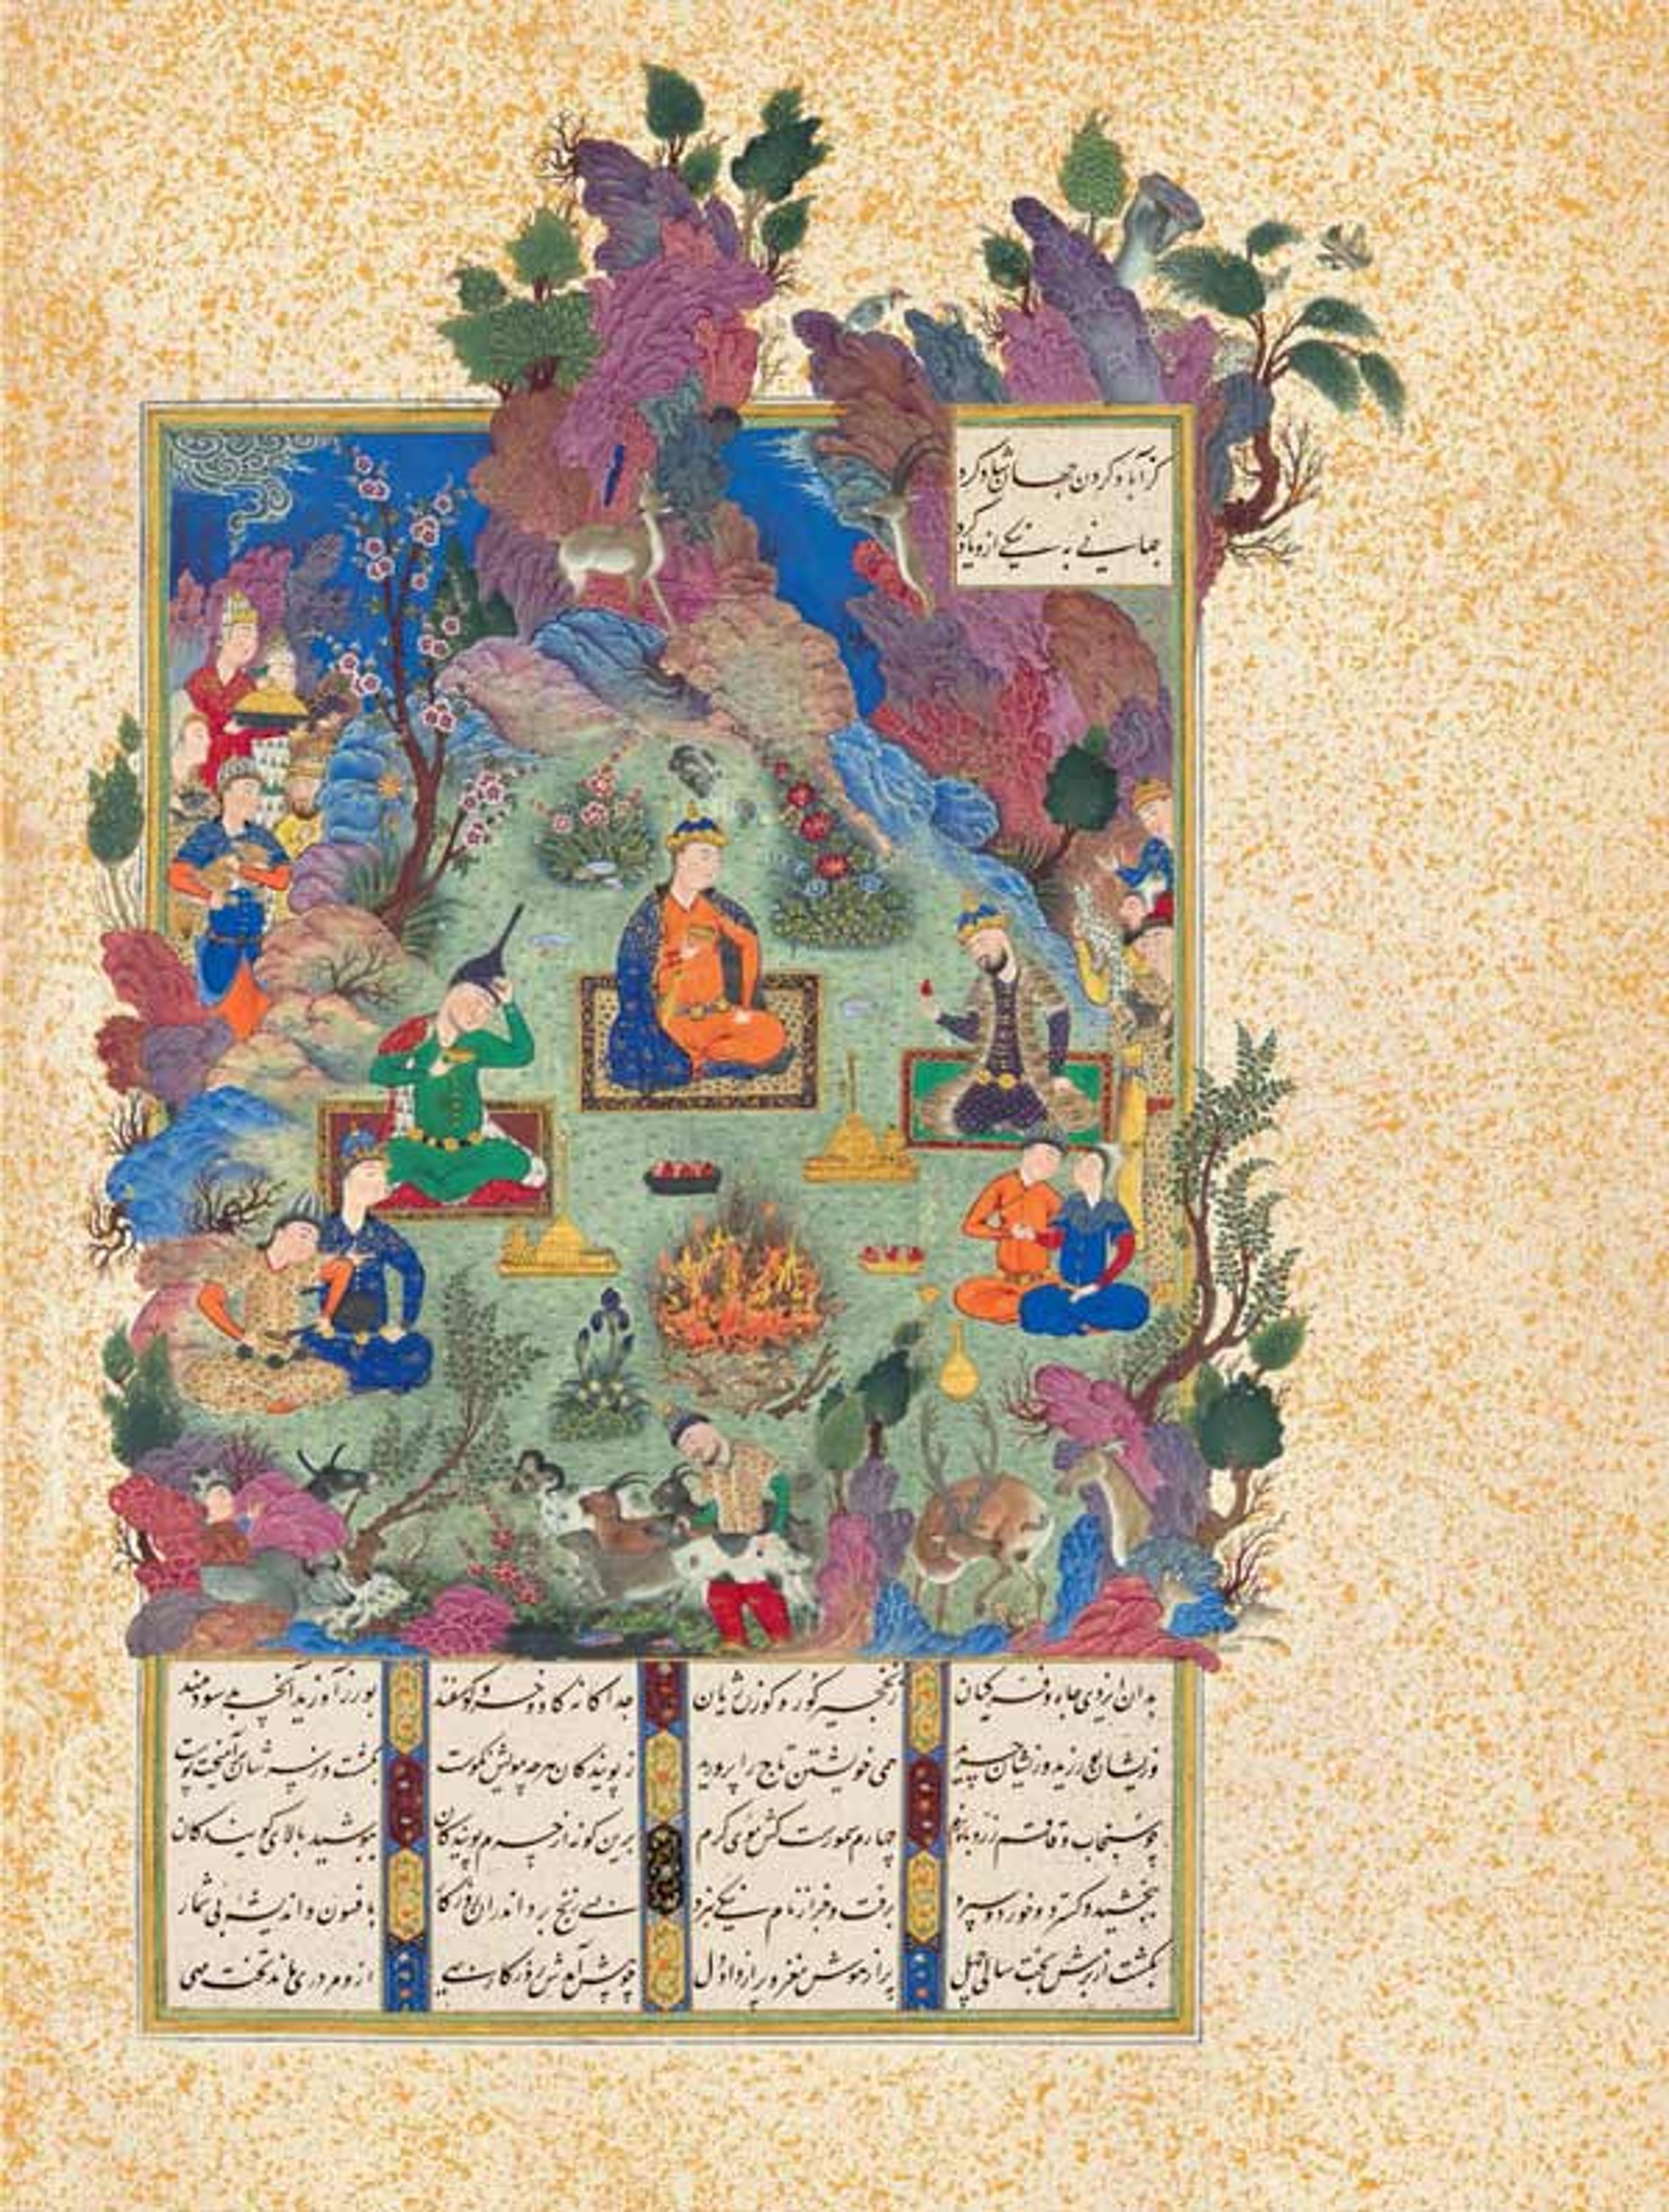 کز آباد کردن جهان شاد کرد
جهانی به نیکی ازو یاد کرد
بدان ایزدی جاه و فر کیان ز نخجیر گور و گوزن ژیان جداگانه گاو و خر و گوسفند بورز آورید آنچه بد سودمند
وزیشان بورزید وزیشان همی خویشتن تاج را پرورید ز پویندگان هر چه مویش نکوست بکشت و ز سرشان برآهیخت پوست
چو سنجاب و قاقم چو روباه نرم چهارم سمورست کش موی گرم برین گونه از چرم پویندگان بپوشید بالای گویندگان
ببخشید و گسترد و خورد و سپرد برفت و جز از نام نیکی نبرد بسی رنج برد اندران روزگار بافسون و اندیشه بی شمار
بگشت از برش بخت سالی چهل پر از هوش مغز و پر از داد دل چو پیش آمدش روزگار بهی ازو مردری ماند تخت مهی